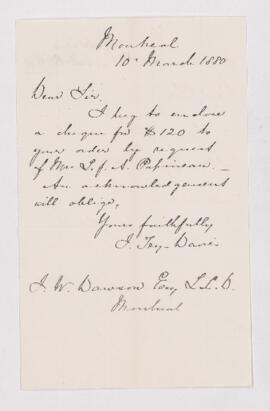 Montreal
10 March 1880
Dear Sir,
I beg to enclose
a cheque for $120 to
your order by request
of Mr L. J. A. Papineau. —
An acknowledgement
will oblige,
Yours faithfully
J. Try-Davies
J. W. Dawson Esq L.L.D.
Montreal